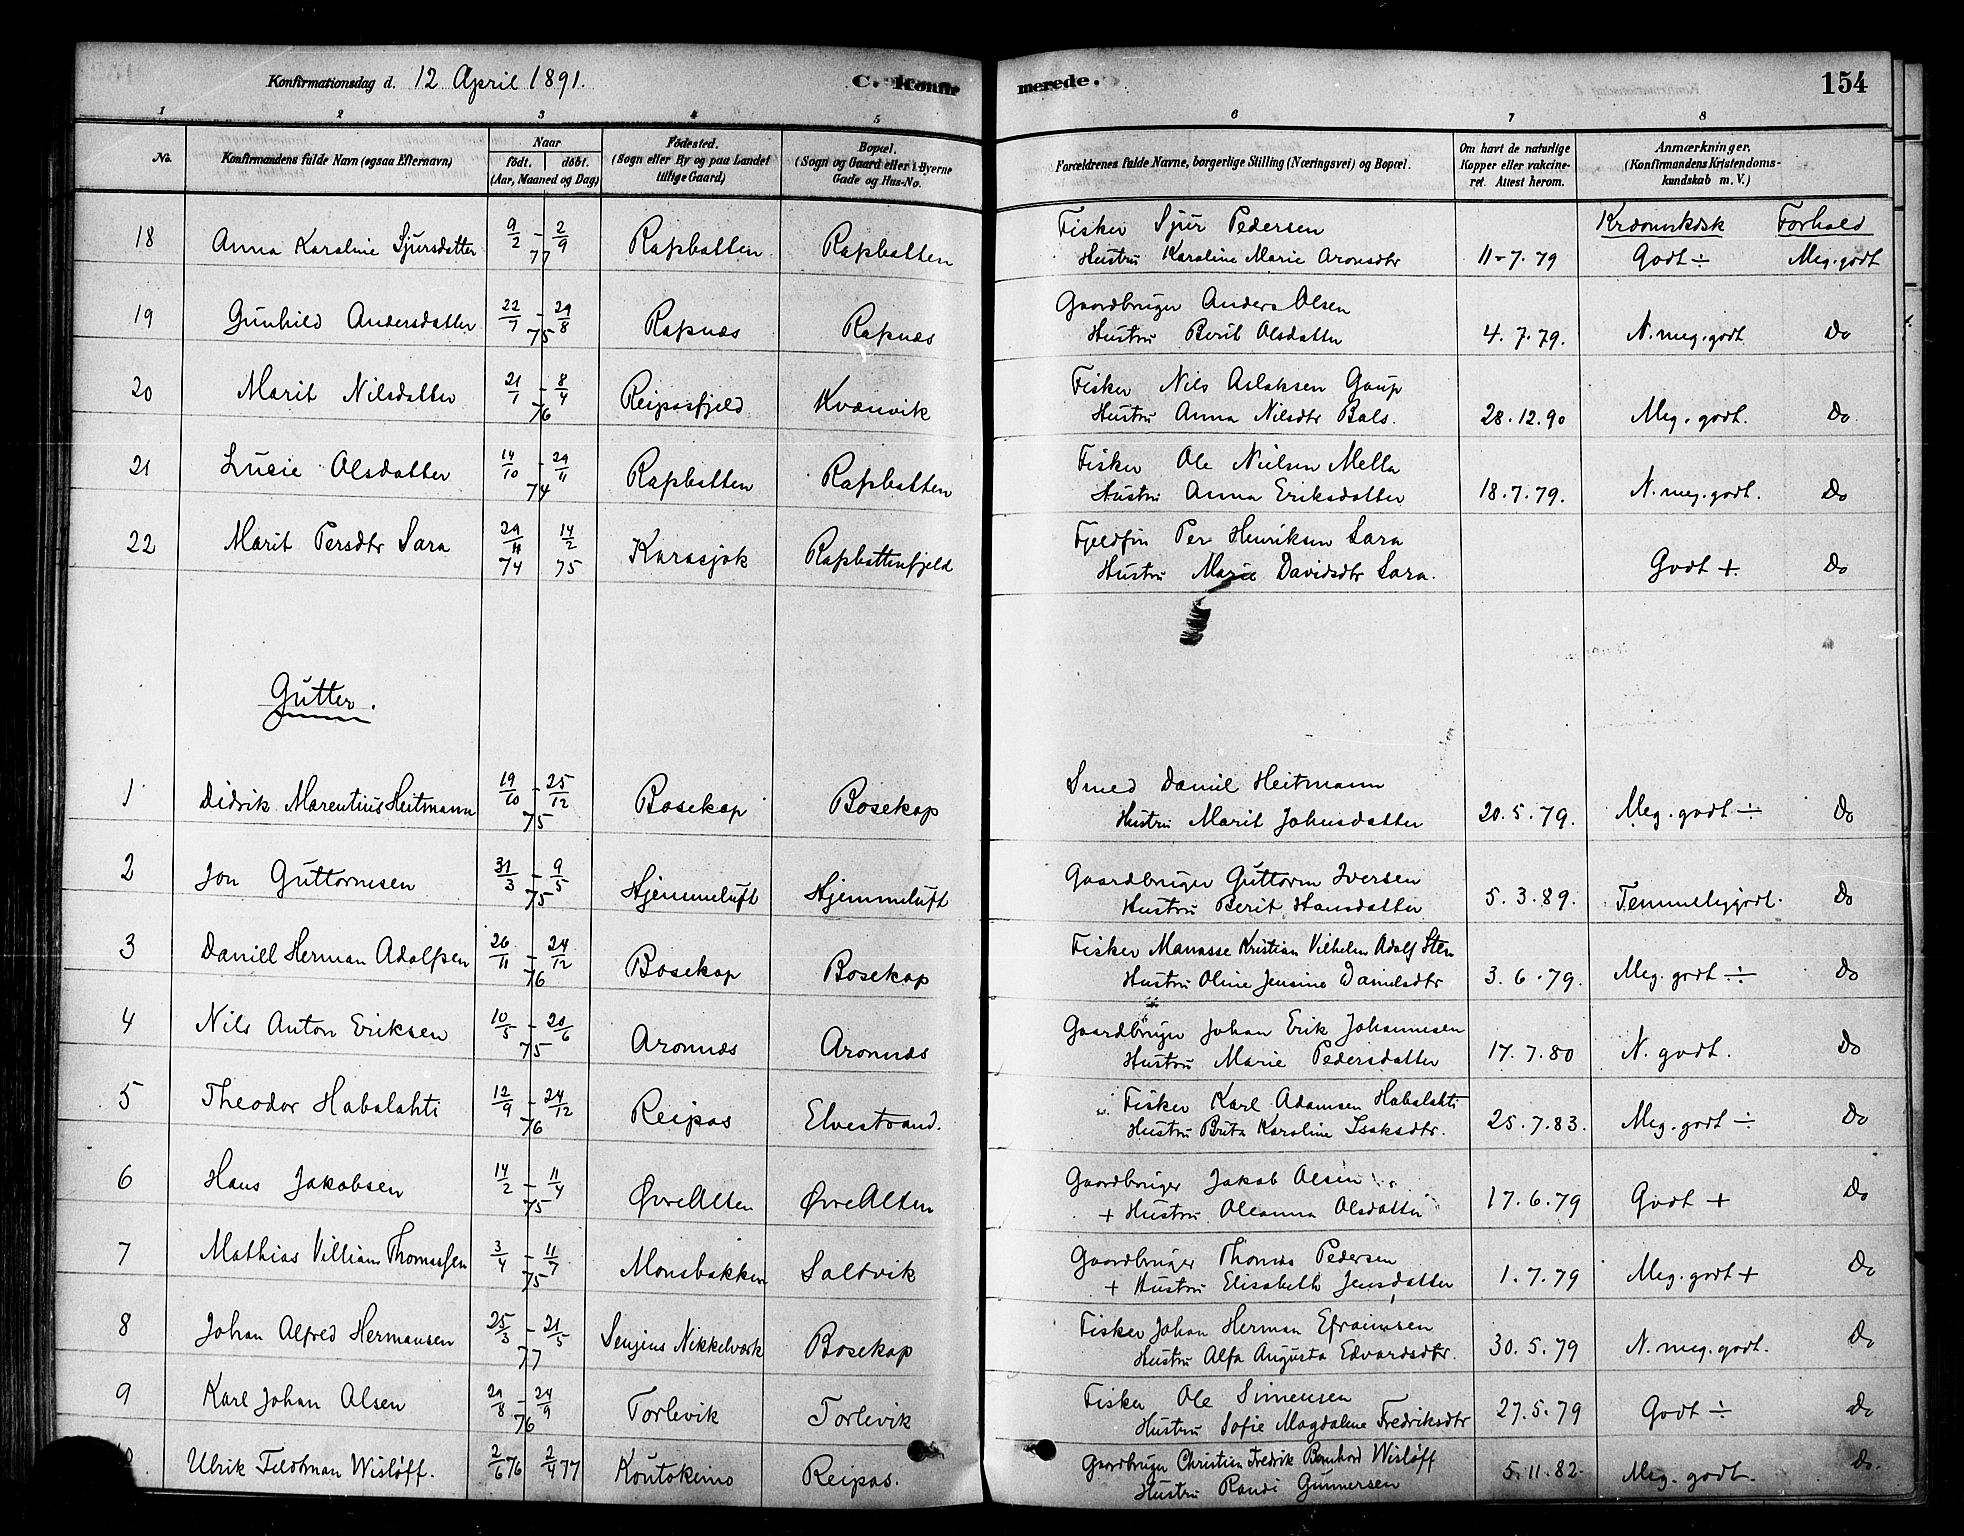 Konfirmationsdag d. 12 April 1891. C. Konfirmerede. 154
1 2 3 4 5 6 7 8
No. Konfirmandens fulde Navn (ogsaa Efternavn) Naar født. døbt. (Aar, Maaned og Dag) Fødested. (Sogn eller By og paa Landet tillige Gaard) Bopæl. (Sogn og Gaard eller i Byerne Gade og Hus-No. Forældrenes fulde Navne, borgerlige Stilling (Næringsvei) og Bopæl. Om havt de naturlige Kopper eller vakcineret. Attest herom. Anmærkninger. (Konfirmandens Kristendomskundskab m. V.)
Krdomskdsk Forhold
18 Anna Karoline Sjursdatter 9/2 - 2/9 77 Rafsbatten Rafsbatten Fisker Sjur Pedersen
Hustru Karoline Marie Aronsdtr 11-7.79 Godt ÷ Meg. godt
19 Gunhild Andersdatter 22/7 - 29/8 75 Rafsnæs Rafsnæs Gaardbruger Anders Olsen
Hustru Berit Olsdatter 4.7.79. N. meg. godt Do
20 Marit Nilsdatter 21/1 - 8/4 76 Reipasfjeld Kvænvik Fisker Nils Aslaksen Gaup
Hustru Anna Nilsdtr Bals. 28.12.90 Meg. godt. Do
21 Lucie Olsdatter 14/10 - 29/11 74 Rafsbatten Rafsbatten Fisker Ole Nielsen Mella
Hustru Anna Eriksdatter 18.7.79. N. meg. godt. Do
22 Marit Persdtr Sara 29/11 74 14/2 75 Karasjok Rafsbattenfjeld Fjeldfin Per Henriksen Sara
Hustru Marie Davidsdtr Sara. Godt + Do
Gutter.
1 Didrik Marentius Heitmann 19/10 - 25/12 75 Bosekop Bosekop Smed Daniel Heitmann
Hustru Marit Johnsdatter 20.5.79. Meg. godt ÷ Do
2 Jon Guttormsen 31/3 - 9/5 75 Hjemmeluft Hjemmeluft Gaardbruger Guttorm Iversen
Hustru Berit Hansdatter 5.3.89. Temmeliggodt. Do
3 Daniell Herman Adolfsen 26/11 - 24/12 76 Bosekop Bosekop Fisker Manasse Kristian Vilhelm Adolf Sten
Hustru Oline Jensine Danielsdtr 3.6.79. Meg. godt ÷ Do
4 Nils Anton Eriksen 10/5 - 20/6 75 Aronnæs Aronnæs Gaardbruger Johan Erik Johannesen
Hustru Marie Pedersdatter 17.7.80 N. godt. Do
5 Theodor Habalahti 12/9 - 24/12 76 Reipas Elvestrand. Fisker Karl Adamsen Habalahti
Hustru Brita Karoline Isaksdtr. 25.7.83. Meg. godt ÷ Do
6 Hans Jakobsen 14/2 - 11/4 75 Øvre Alten Øvre Alten Gaardbruger Jakob Olsen
+ Hustru Oleanna Olsdatter 17.6.79 Godt + Do
7 Mathias Villiam Thomassen 3/4 - 11/7 75 Monsbakken Saltvik Gaardbruger Thomas Pedersen
+ Hustru Elisabeth Jensdatter 1.7.79 Meg. godt + Do
8 Johan Alfred Hermansen 25/3 - 21/5 77 Senjens Nikkelværk Bosekop Fisker Johan Herman Efraimsen
Hustru Alfa Augusta Edvardsdtr. 30.5.79 N. meg. godt. Do
9 Karl Johan Olsen 29/8 - 24/9 76 Torlevik Torlevik Fisker Ole Simensen
Hustru Sofie Magdalene Fredriksdtr 27.5.79 Godt ÷ Do
Ulrik Feldtman Wisløff. 2/6 76 2/4 77 Koutokeino Reipas. Gaardbruger Christian Fredrik Bernhard Wisløff
Hustru Randi Gunnersen 5.11.82. Meg. godt. Do.